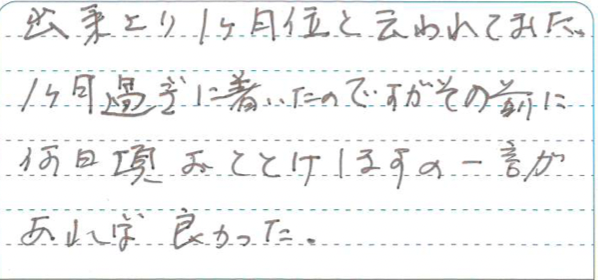 出来上り1ヶ月位と云われてました。
1ヶ月過ぎに着いたのですがその前に
何日頃おとどけしますの一言が
あれば良かった。